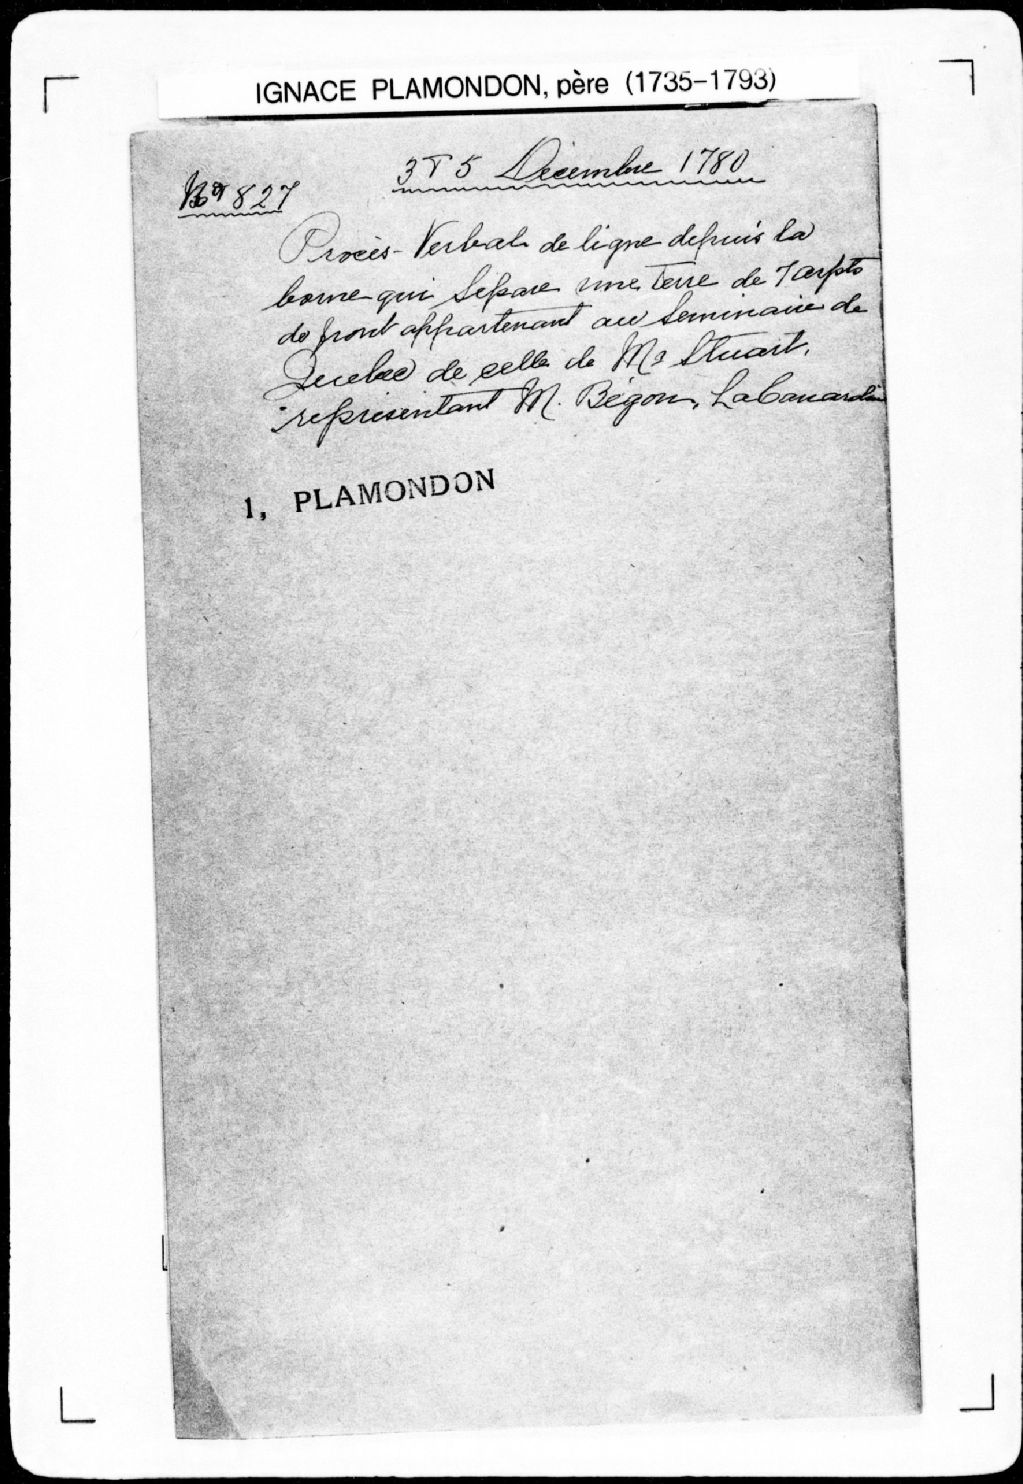 IGNACE PLAMONDON, père (1735-1793)
3 & 5 Décembre 1780
No 827
Procès-Verbal de ligne depuis la
borne qui sépare une terre de 7 arpts
de front appartenant au Seminaire de
Quebec de celle de Mr Stuart,
représentant M. Bégon, LaCanardière
1, PLAMONDON